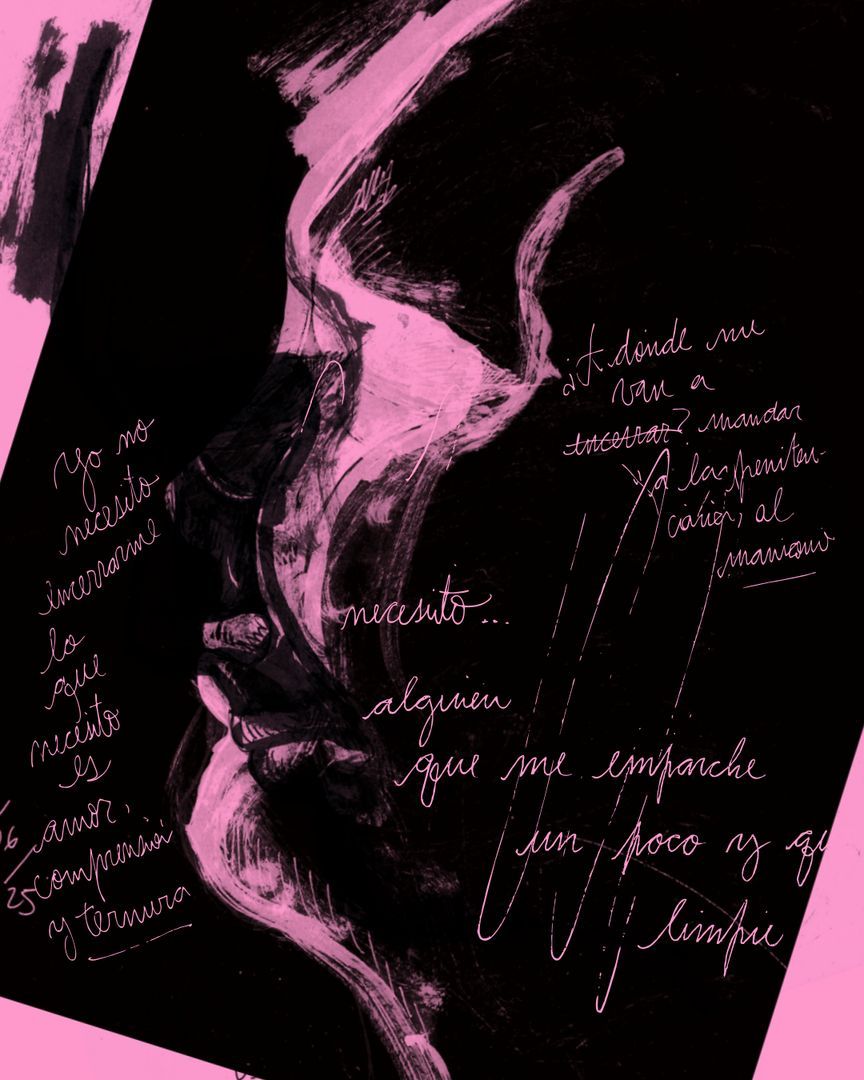 Yo no
necesito
encerrarme
lo
que
necesito
es
amor,
comprensión
y ternura
06
25
dónde me
van a
encerrar? mandar
a las peniten-
ciarías, al
manicomio
necesito...
alguien
que me emparche
un poco y qu
limpie